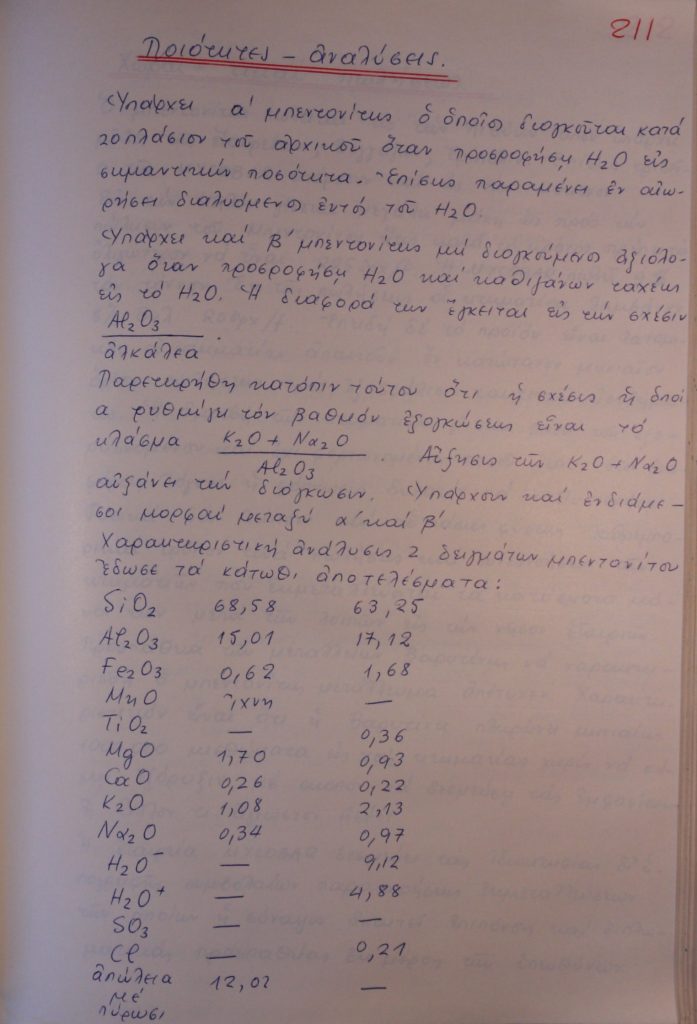 211
Ποιότητες – ἀναλύσεις.
Ὑπάρχει α' μπεντονίτης ὁ ὁποῖος διογκοῦται κατά
20πλάσιον τοῦ ἀρχικοῦ ὅταν προσροφήση H₂O εἰς
σημαντικήν ποσότητα. Ἐπίσης παραμένει ἐν αἰω-
ρήσει διαλυόμενος ἐντός τοῦ H₂O.
Ὑπάρχει καί β' μπεντονίτης μή διογκούμενος ἀξιόλο-
γα ὅταν προσροφήση H₂O καί καθιζάνων ταχέως
εἰς τό H₂O. Ἡ διαφορά των ἔγκειται εἰς τήν σχέσιν
Al₂O₃
ἀλκάλεα
Παρετηρήθη κατόπιν τούτου ὅτι ἡ σχέσις ἡ ὁποί
α ρυθμίζει τόν βαθμόν ἐξογκώσεως εἶναι τό
κλάσμα K₂O + Nα₂O . Αὔξησις τῶν K₂O + Nα₂O
Al₂O₃
αὐξάνει τήν διόγκωσιν. Ὑπάρχουν καί ἐνδιάμε-
σοι μορφαί μεταξύ α' καί β'
Χαρακτηριστική ἀνάλυσις 2 δειγμάτων μπεντονίτου
ἔδωσε τά κάτωθι ἀποτελέσματα:
SiO₂ 68,58 63,25
Al₂O₃ 15,01 17,12
Fe₂O₃ 0,62 1,68
MnO ἴχνη —
TiO₂ — 0,36
MgO 1,70 0,93
CaO 0,26 0,22
K₂O 1,08 2,13
Nα₂O 0,34 0,97
H₂O⁻ — 9,12
H₂O⁺ — 4,88
SO₃ — —
Cl — 0,21
ἀπώλεια 12,02 —
μέ
πύρωσι